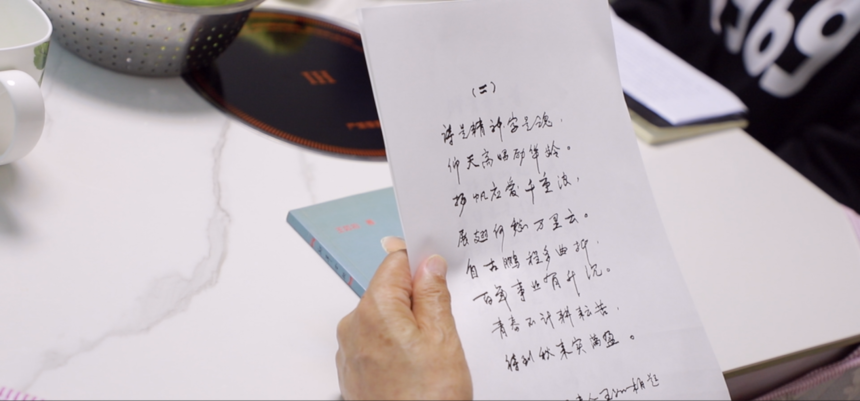 （二）
诗是精神字是魂，
仰天高唱励年龄。
扬帆应爱千重浪，
展翅何愁万里云。
自古鹏程多曲折，
百年事业有升沉。
青春不计耕耘苦，
待到秋来实满盈。
1969